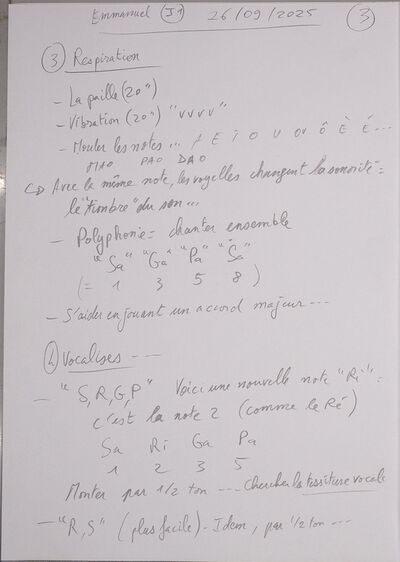 Emmanuel J1 26/09/2025 3
3 Respiration
- La paille (20")
- Vibration (20") "vvvv"
- Mouler les notes... A E I O U OU Ô È É...
MAO PAO DAO
Avec la même note, les voyelles changent la sonorité =
le "timbre" du son...
- Polyphonie = chanter ensemble
"Sa" "Ga" "Pa" "Sa"
(= 1 3 5 8)
- S'aider en jouant un accord majeur ---
4 Vocalises ---
- "S, R, G, P" Voici une nouvelle note "Ri" =
c'est la note 2 (comme le Ré)
Sa Ri Ga Pa
1 2 3 5
Monter par 1/2 ton --- Chercher la tessiture vocale
- "R, S" (plus facile) - Idem, par 1/2 ton ---